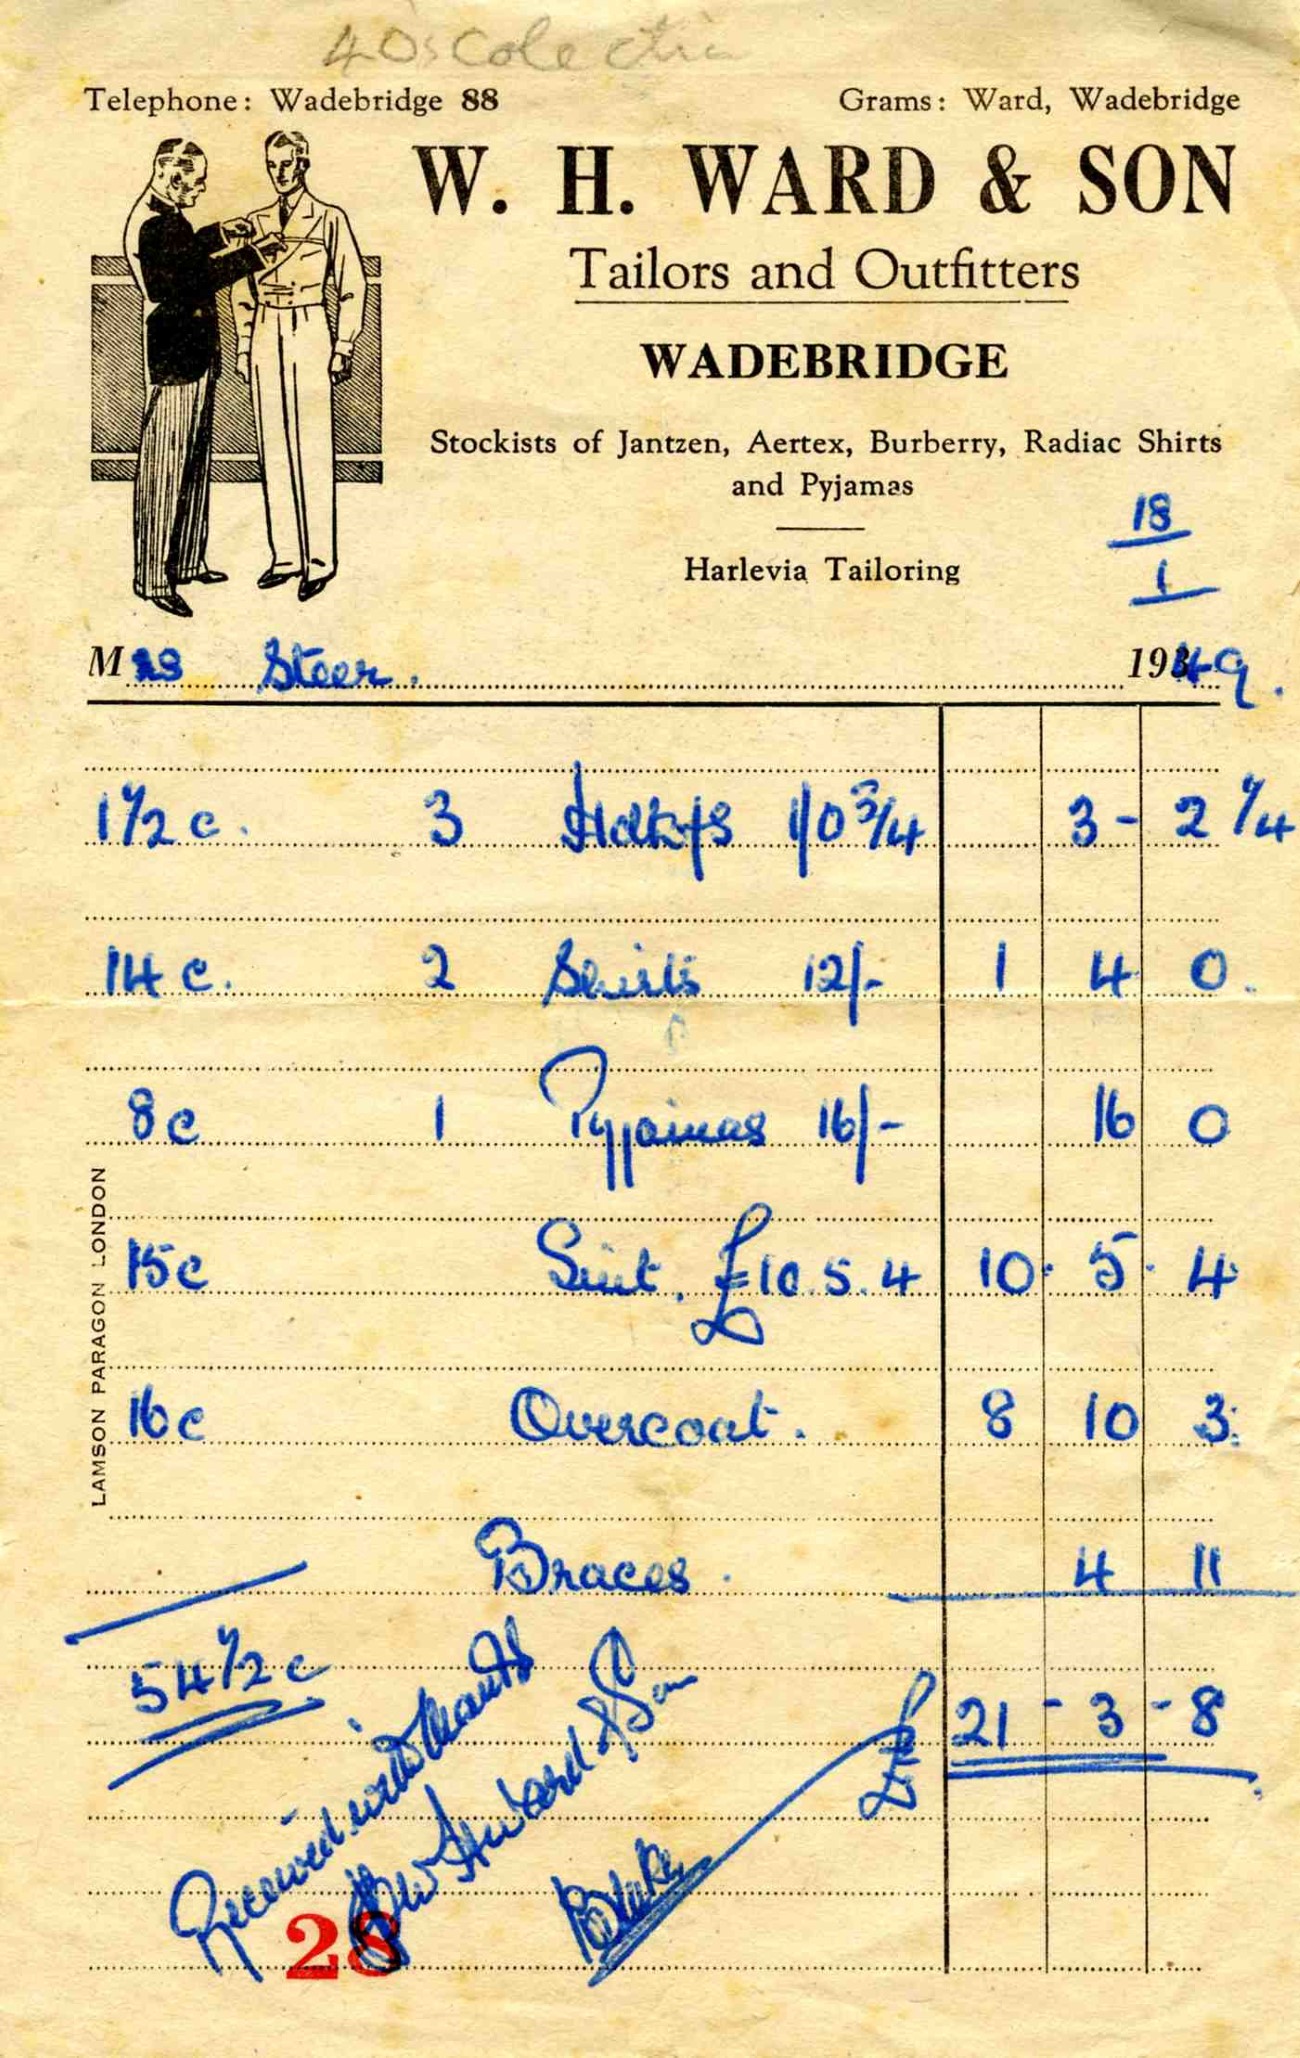 40s Colectin
Telephone: Wadebridge 88
Grams: Ward, Wadebridge
W. H. WARD & SON
Tailors and Outfitters
WADEBRIDGE
Stockists of Jantzen, Aertex, Burberry, Radiac Shirts
and Pyjamas
18
1
Harlevia Tailoring
Mrs Steer. 1949.
1 1/2 c. 3 Hdkfs 1/0 3/4 3 - 2 1/4
14 c. 2 Shirts 12/- 1 4 0.
8c 1 Pyjamas 16/- 16 0
15c Suit. £10.5.4 10 · 5 · 4
16c Overcoat. 8 10 3
Braces. 4 11
54 1/2 c
£ 21 - 3 - 8
Received with thanks
pp W H Ward & Son
Blake
28
LAMSON PARAGON LONDON